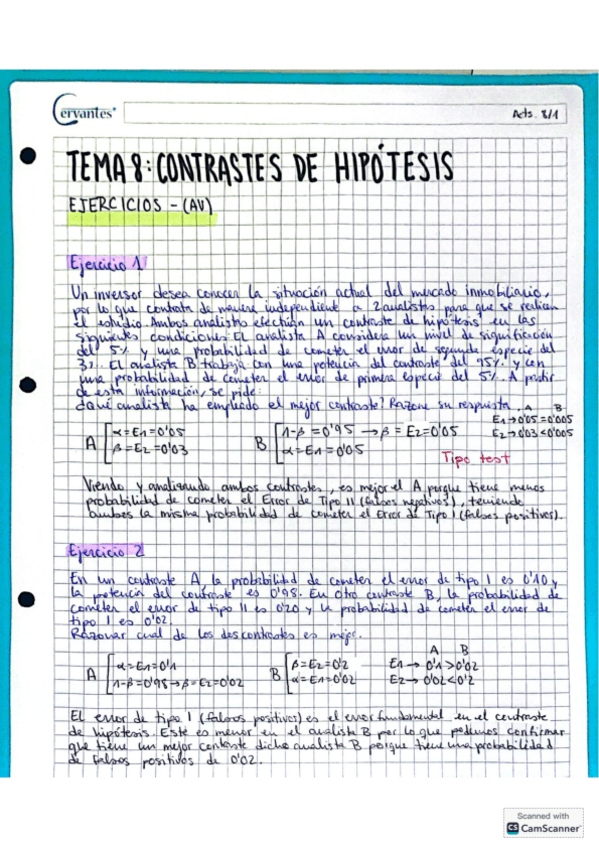 Cervantes®
Acts. 8/1
TEMA 8: CONTRASTES DE HIPÓTESIS
EJERCICIOS - (AV)
Ejercicio 1
Un inversor desea conocer la situación actual del mercado inmobiliario,
por lo que contrata de manera independiente a 2 analistas para que se realicen
el estudio. Ambos analistas efectúan un contraste de hipótesis en las
siguientes condiciones: EL analista A considera un nivel de significación
del 5% y una probabilidad de cometer el error de segunda especie del
3%. EL analista B trabaja con una potencia del contraste del 95% y con
una probabilidad de cometer el error de primera especie del 5%. A partir
de esta información, se pide:
¿Qué analista ha empleado el mejor contraste? Razone su respuesta.
A B
E1→0'05=0'005
E2→0'03<0'005
A [ α=E1=0'05
β=E2=0'03
B [ 1-β=0'95 → β=E2=0'05
α=E1=0'05
Tipo test
Viendo y analizando ambos contrastes, es mejor el A porque tiene menos
probabilidad de cometer el Error de Tipo II (falsos negativos), teniendo
ambos la misma probabilidad de cometer el Error de Tipo I (falsos positivos).
Ejercicio 2
En un contraste A, la probabilidad de cometer el error de tipo I es 0'10 y
la potencia del contraste es 0'98. En otro contraste B, la probabilidad de
cometer el error de tipo II es 0'20 y la probabilidad de cometer el error de
tipo I es 0'02.
Razonar cual de los dos contrastes es mejor.
A B
A [ α=E1=0'1
1-β=0'98→β=E2=0'02
B [ β=E2=0'2
α=E1=0'02
E1→ 0'1>0'02
E2→ 0'02<0'2
EL error de tipo I (falsos positivos) es el error fundamental en el contraste
de hipótesis. Este es menor en el analista B por lo que podemos confirmar
que tiene un mejor contraste dicho analista B porque tiene una probabilidad
de falsos positivos de 0'02.
Scanned with
CS CamScanner